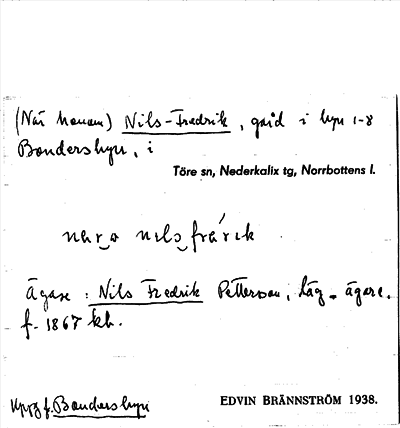 (När honom) Nils-Fredrik, gård i byn 1-8
Bondersbyn, i
Töre sn, Nederkalix tg, Norrbottens l.
nils frärik
Ägare: Nils Fredrik Pettersson, läg. ägare.
f. 1867 kb.
Uppg f. Bondersbyn
EDVIN BRÄNNSTRÖM 1938.